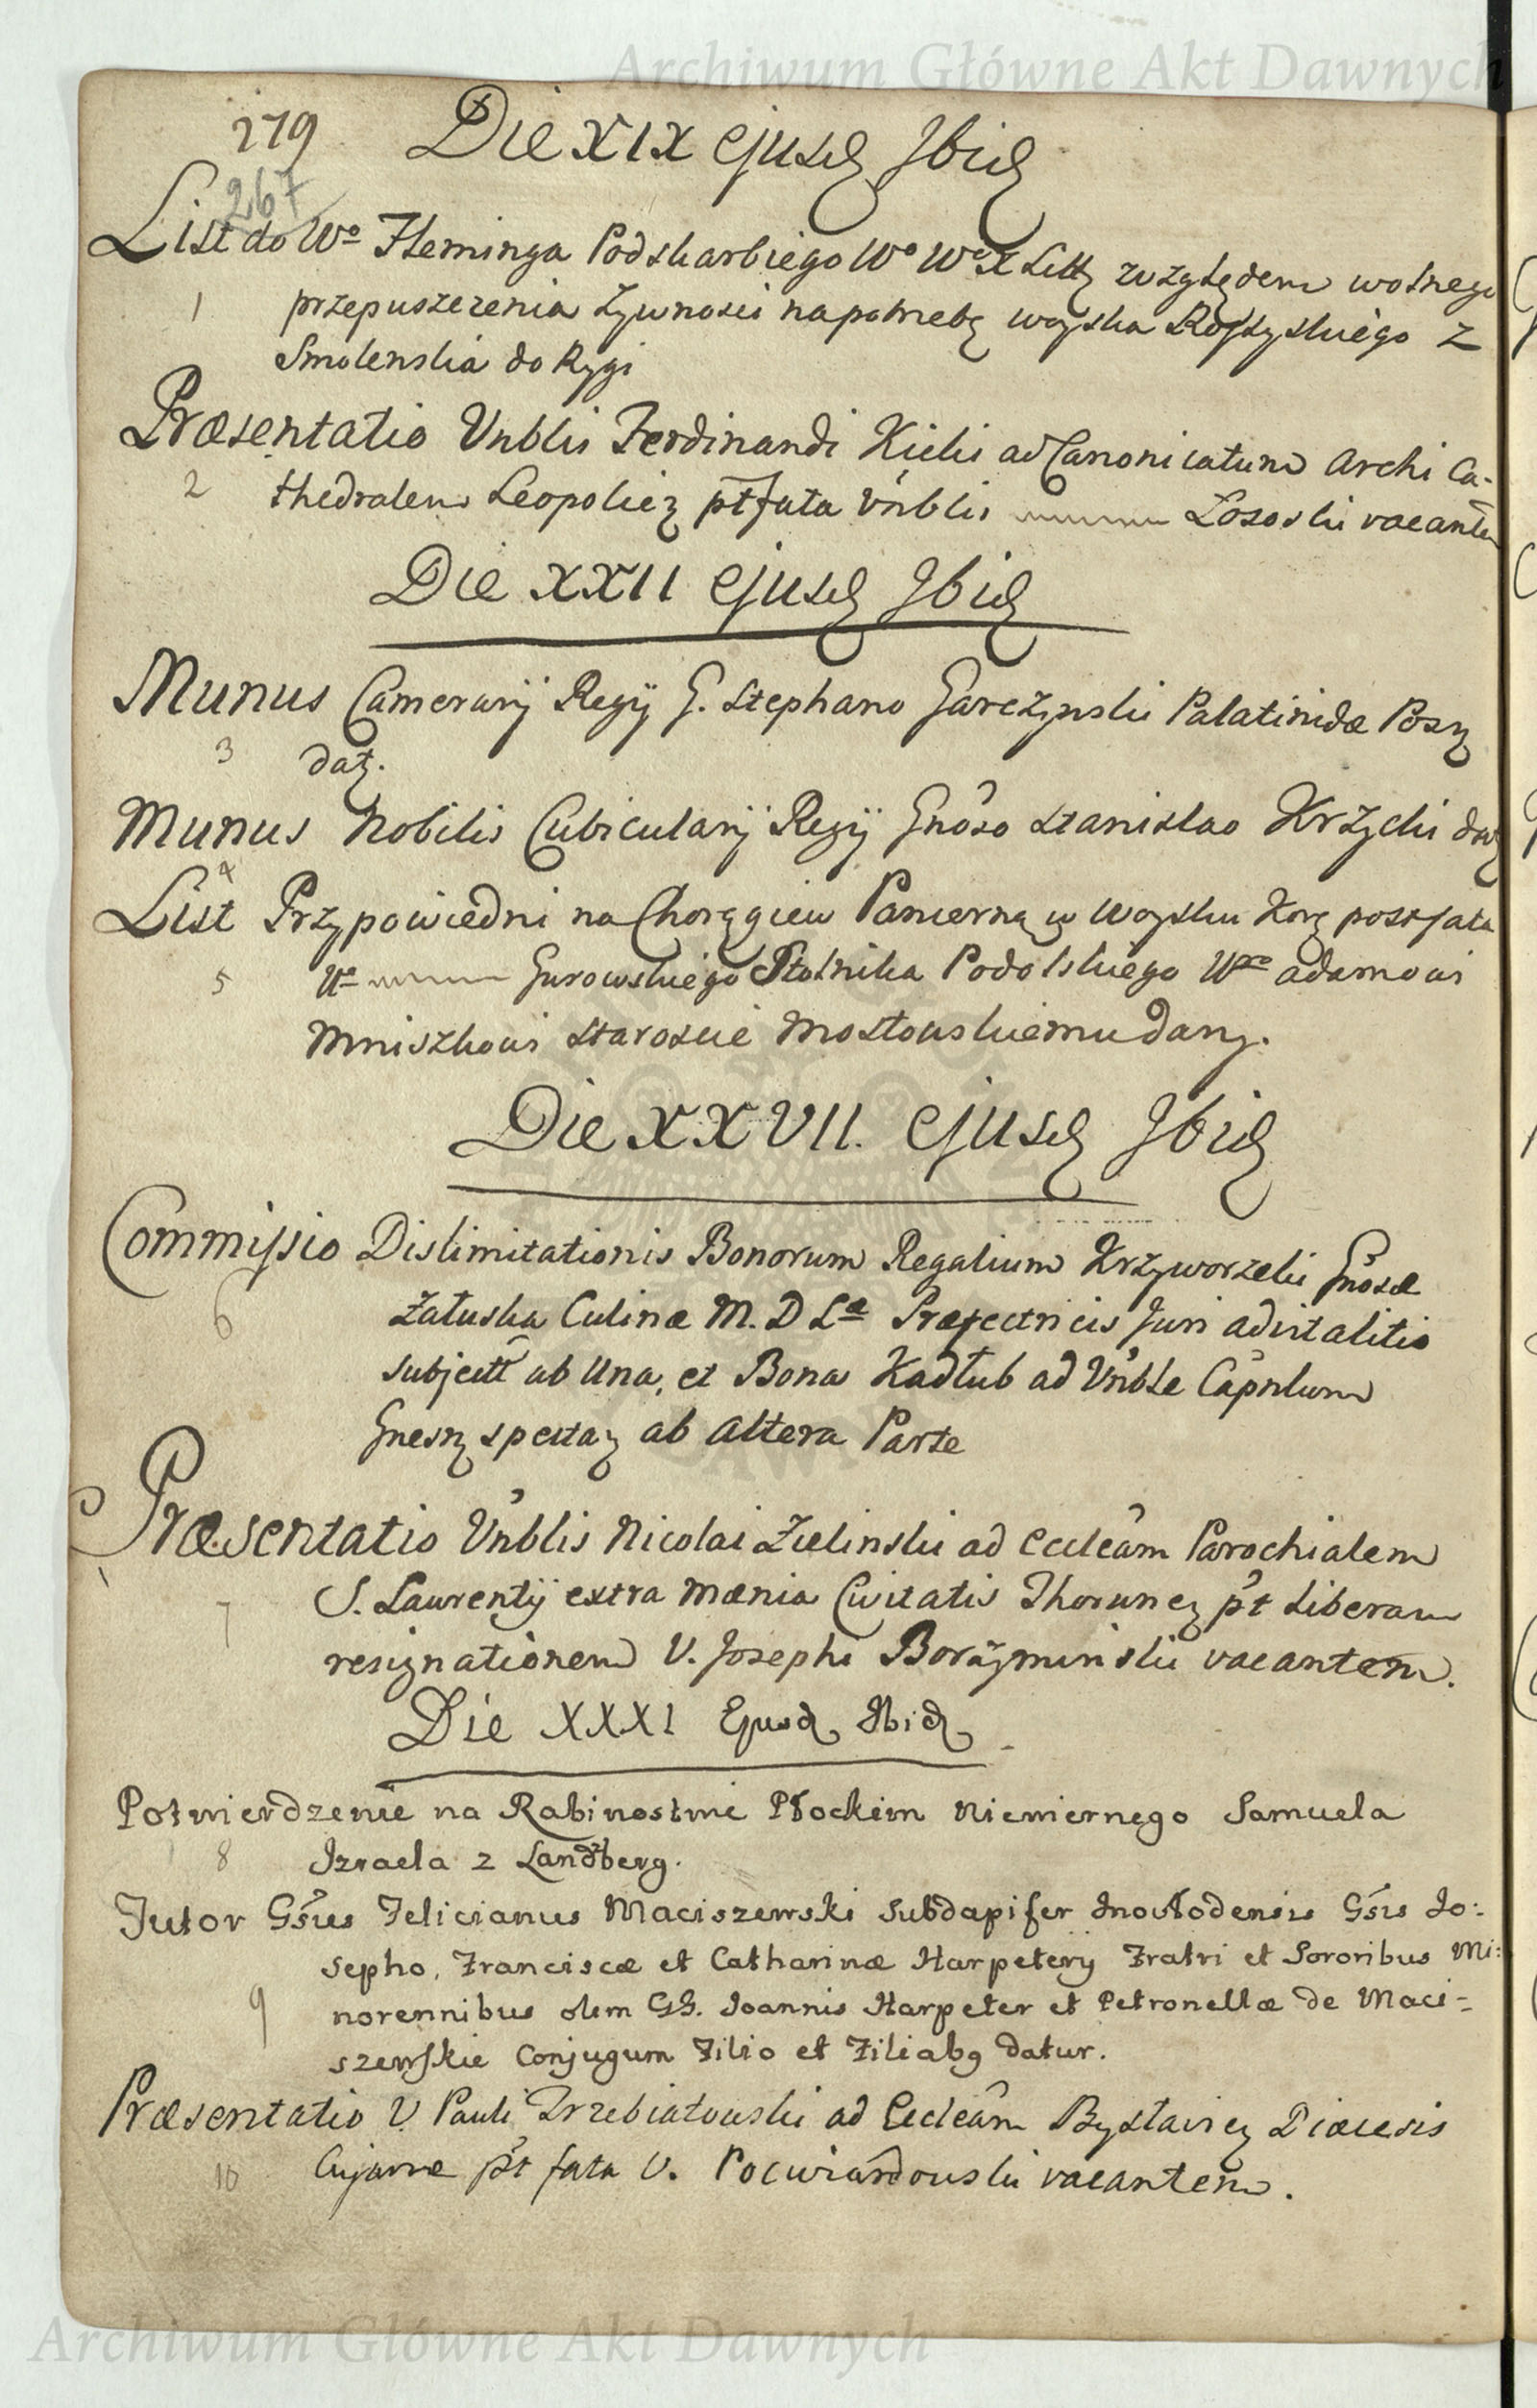 Archiwum Główne Akt Dawnych
279 Die XIX ejusd Ibid
267
List do Wo Fleminga Podskarbiego Wo WoX Litt względem wolnego
1 przepuszczenia Zywnosci na potrzebę woyska Rossyskiego z
Smolenska do Rygi
Præsentatio Vnblis Ferdinandi Kicki ad Canonicatum Archi Ca-
2 thedralem Leopoliez pt fata Vnblis Lososki vacantem
Die XXII ejusd Ibid
Munus Camerarij Regij G. Stephano Garczynski Palatinidæ Posz
3 datz.
Munus Nobilis Cubicularij Regij Gnoso Stanislao Krzycki datz
4
List Przypowiedni na Chorągiew Pancerną w Woysku Kor post fata
5 Wo Gurowskiego Stolnika Podolskiego Wmo Adamowi
Mniszkowi Staroscie Mostowskiemu dany.
Die XXVII. ejusd Ibid
Commissio Dislimitationis Bonorum Regalium Krzyworzeki Gnosæ
6 Załuska Culinæ M. D Læ Præfectricis Juri advitalitio
subjectt ab Una, et Bona Kadłub ad Vnble Capnlum
Gnesz spectaz ab Altera Parte
Præsentatio Vnblis Nicolai Zielinski ad Eccleam Parochialem
7 S. Laurentij extra Mænia Civitatis Thorunez pt Liberam
resignationem V. Josephi Borzyminski vacantem.
Die XXXI Ejusd Ibid
Potwierdzenie na Rabinostwie Płockim Niewiernego Samuela
8 Izraela z Landzberg.
Tutor Gsus Felicianus Maciszewski Subdapifer Inovłodensis Gsis Jo:
sepho, Franciscæ et Catharinæ Harpeterij Fratri et Sororibus Mi:
9 norennibus olim GG. Joannis Harpeter et Petronellæ de Maci-
szewskie Conjugum Filio et Filiabg datur.
Præsentatio V. Pauli Trzebiatowski ad Eccleam Bysławiez Diæcesis
10 Cujavæ pt fata V. Pocwiardowski vacantem.
Archiwum Główne Akt Dawnych